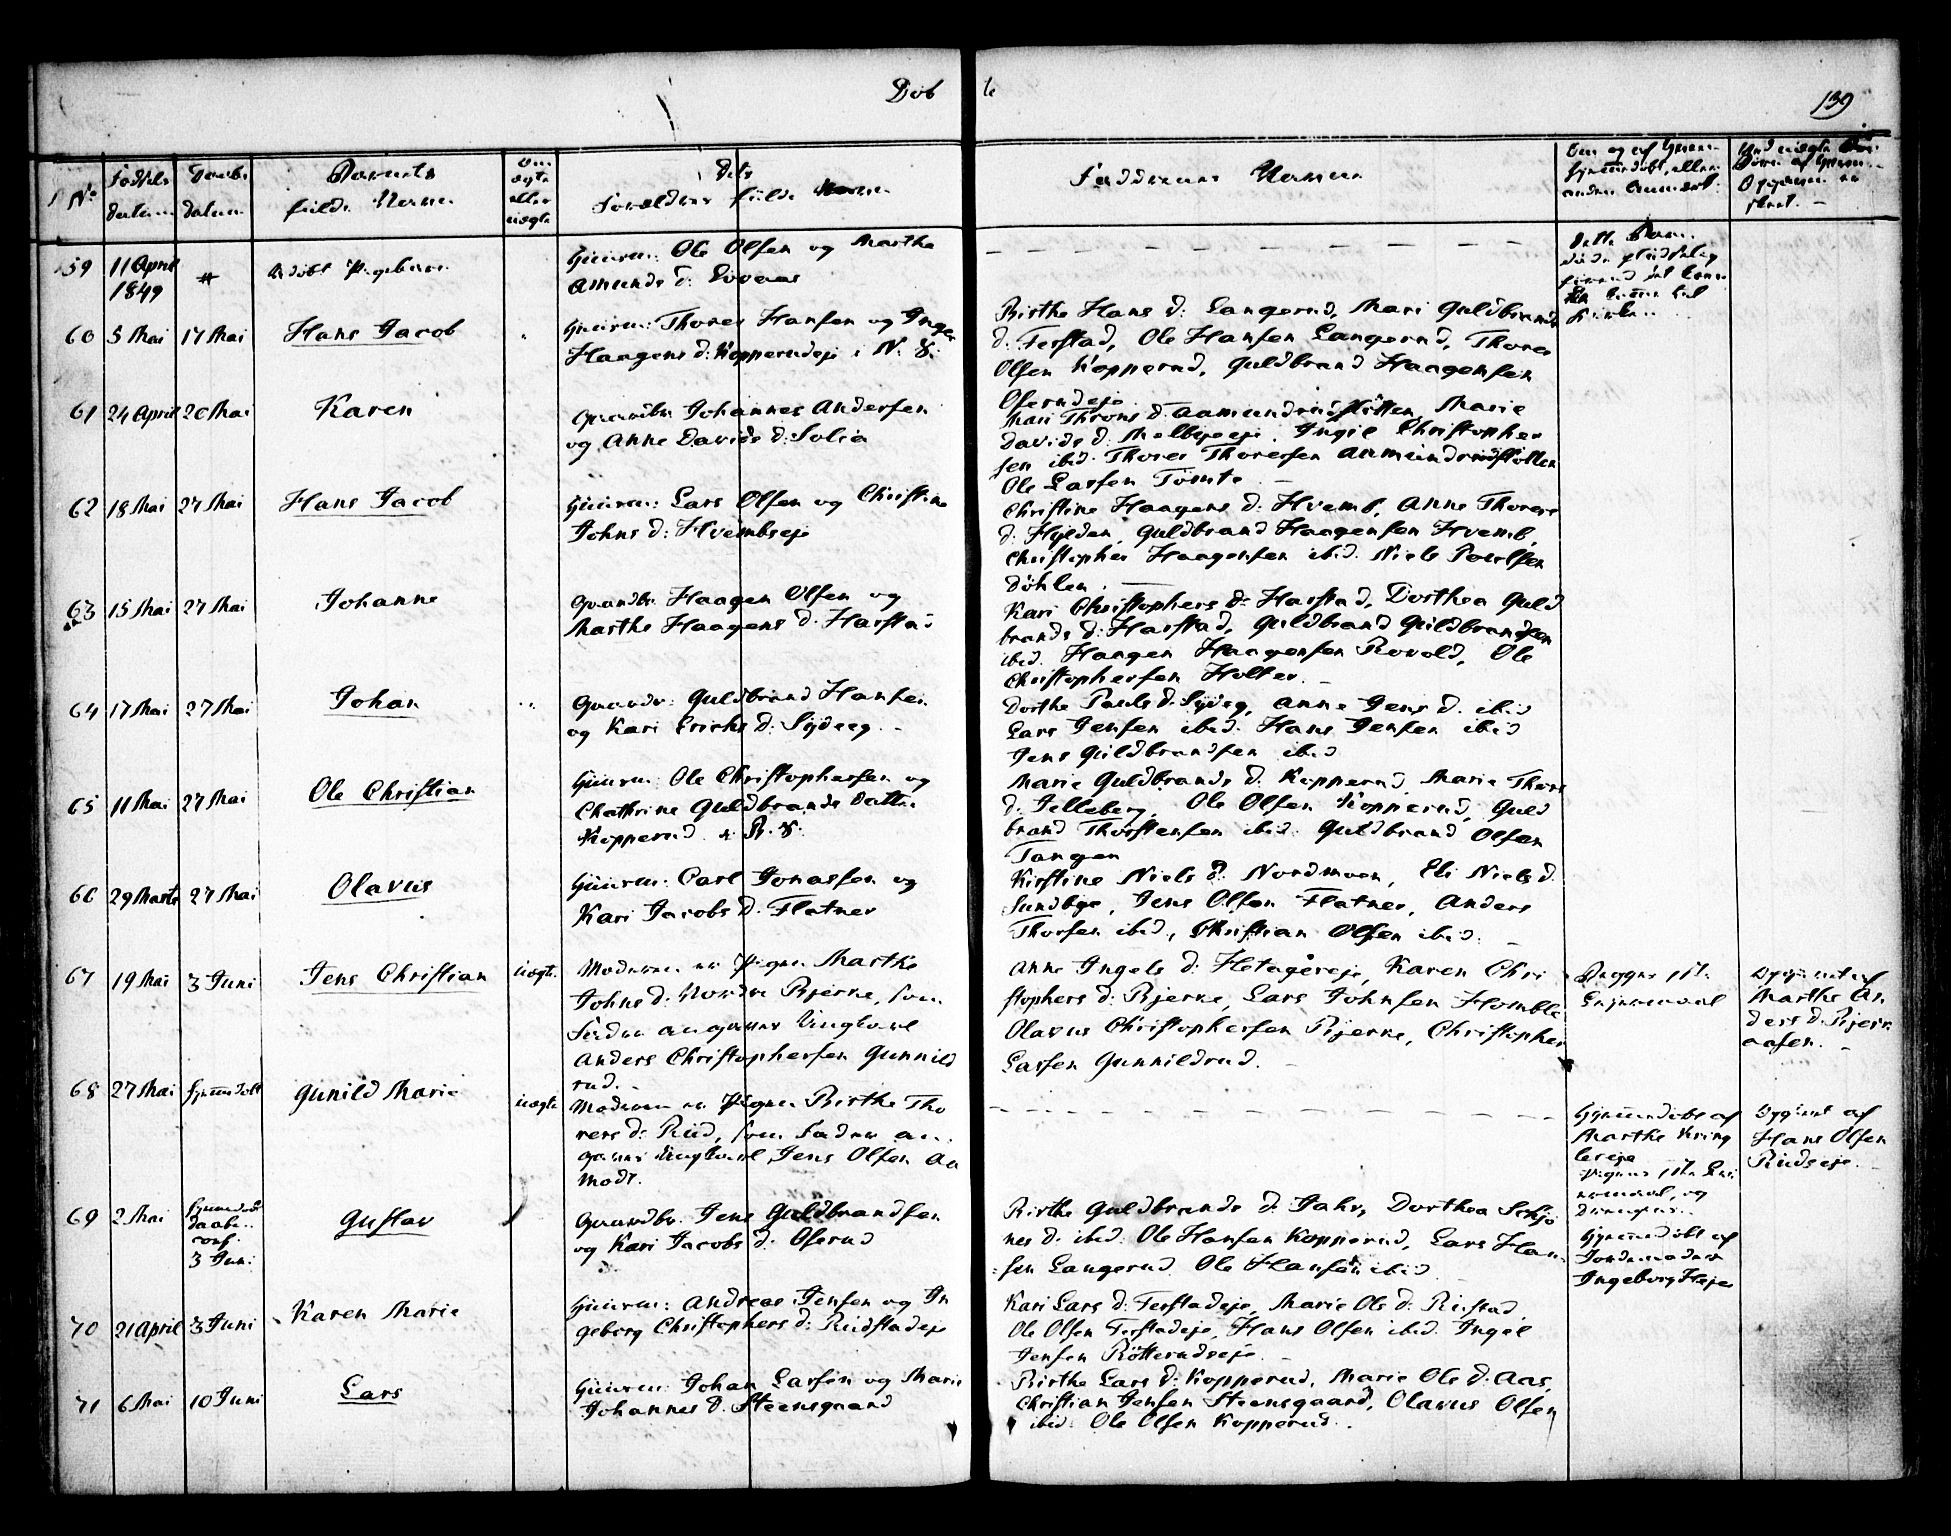 Døb
te
139
No
Fødsels
datum
Daabs
datum
Barnets
fulde Navn
Om
ægte
eller
uægte
Dets
Forældres fulde Navn
Faddernes Navne
Om og af hvem
hjemmedøbt, eller
anden Anmærk.
59
11 April
1849
udøbt Pigebarn
Huusm: Ole Olsen og Marthe
Amunds d:
Dette Barn
døde
60
5 Mai
17 Mai
Hans Jacob
Huusm: Thores Hansen og Inger
Haagens d: Kopperudeje i N. V.
Birthe Hans d: Langerud, Mari Guldbrands
d: Ferstad, Ole Hansen Langerud, Thores
Olsen Kopperud, Guldbrand Haagensen
Oserudeje
61
24 April
20 Mai
Karen
Gaardbr Johannes Andersen
og Anne Davids d: Solia
Mari Throns d: Aamundrudslotten, Marie
Davids d: Melbyeeje, Ingil Christopher
sen ibid. Thores Thoresen Aamundrudslotten
Ole Larsen Tømte
62
18 Mai
27 Mai
Hans Jacob
Huusm: Lars Olsen og Christine
Johns d: Hvembseje
Christine Haagens d: Hvemb, Anne Thores
d: Hylden, Guldbrand Haagensen Hvemb,
Christopher Haagensen ibid. Niels Povelsen
Døhlen
63
15 Mai
27 Mai
Johanne
Gaardbr Haagen Olsen og
Marthe Haagens d. Harstad
Kari Christophers d: Harstad, Dorthea Guld
brands d: Harstad, Guldbrand Guldbrandsen
ibid. Haagen Haagensen Rovold, Ole
Christophersen Holter.
64
17 Mai
27 Mai
Johan
Gaardbr: Guldbrand Hansen
og Kari Erichs d: Sydeeg
Dorthe Pauls d. Sydeg, Anne Jens d. ibid
Lars Jensen ibid. Hans Jensen ibid
Jens Guldbrandsen ibid
65
11 Mai
27 Mai
Ole Christian
Huusm: Ole Christophersen og
Chathrine Guldbrands Datter
Kopperud
Marie Guldbrands d. Kopperud, Marie Thors
d: Jelleberg, Ole Olsen Kopperud, Guld
brand Thorstensen ibid. Guldbrand Olsen
Tangen
66
29 Marts
27 Mai
Olavus
Huusm: Carl Jonassen og
Kari Jacobs d. Flatner
Kirstine Niels d: Nordmoen, Eli Niels d.
Sundbye, Jens Olsen Flatner, Anders
Thorsen ibid, Christian Olsen ibid.
67
19 Mai
3 Juni
Jens Christian
uægte
Moderen er Pigen Marthe
Johns d: Nordre Bjerke, som
Fader angaves Ungkarl
Anders Christophersen Gunnild
rud.
Anne Ingels d: Hetagereje, Karen Chri
stophers d: Bjerke, Lars Johnsen Homble
Olavus Christophersen Bjerke, Christopher
Larsen Gunnildrud.
Begges 1ste
Leiermaal
Opgivet af
Marthe An
ders d. Bjerk
aasen.
68
27 Mai
hjemmedøbt
Gunild Marie
uægte
Moderen er Pigen Birthe Tho
res d: Rud, som Fader an
gaves Ungkarl Jens Olsen Aa
modt.
Hjemmedøbt af
Marthe Kring
lereje
Pigens 1ste Lei
ermaal, og
Opgivet af
Hans Olsen
Rudseje.
69
2 Mai
hjemmedøbt
Daab
conf.
3 Juni
Gustav
Gaardbr. Jens Guldbrandsen
og Kari Jacobs d: Oserud
Birthe Guldbrands d. Jahr, Dorthea Schjø
nes d. ibid: Ole Hansen Kopperud, Lars Han
sen Langerud Ole Hansen ibid
Hjemmedøbt af
Jordemoder
Ingeborg Høje
70
21 April
3 Juni
Karen Marie
Huusm: Andreas Jensen og In
geborg Christophers d: Rudstadeje
Kari Lars d: Ferstadeje, Marie Ole d: Rustad
Ole Olsen Ferstadeje, Hans Olsen ibid. Ingil
Jensen Rotterudseje.
71
6 Mai
10 Juni
Lars
Huusm: Johan Larsen og Marie
Johannes d. Steensgaard
Birthe Lars d: Kopperud, Marie Ole d: Aas,
Christian Jensen Steensgaard, Olavus Olsen
ibid. Ole Olsen Kopperud.